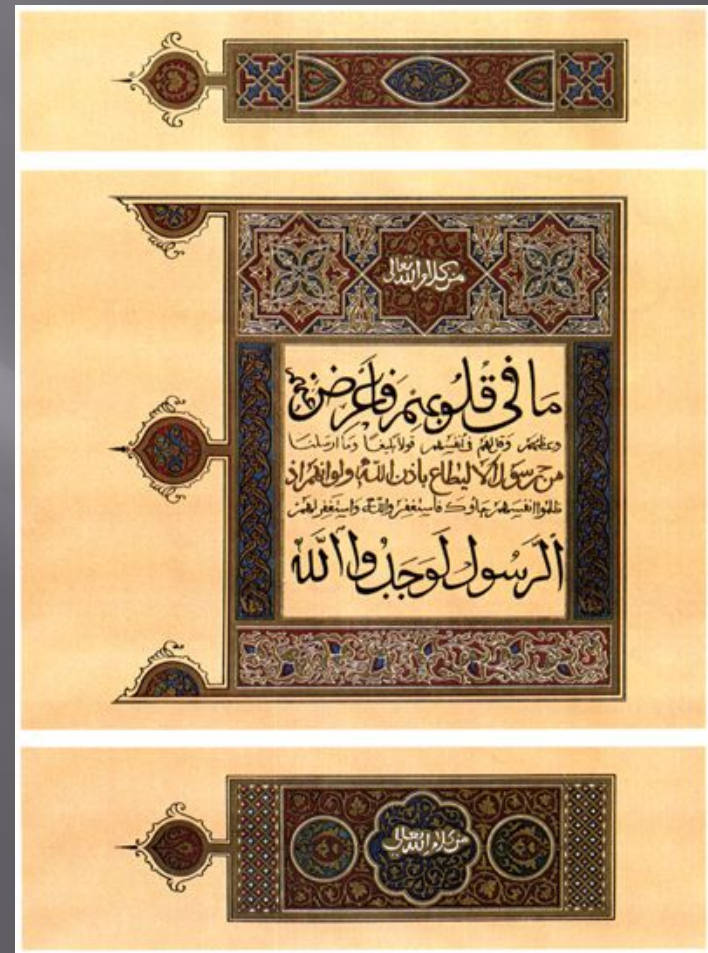 من كلام الله تعالى
مَا فى قُلُوبِهِمْ فَأَعْرِضْ عنهم
وعظهم وقل لهم في انفسهم قولا بليغا وما ارسلنا
من رسول الا ليطاع باذن الله ولو انهم اذ
ظلموا انفسهم جاوك فاستغفروا الله واستغفر لهم
الرَّسُول لَوَجَدُوا اللَّه
من كلام الله تعالى